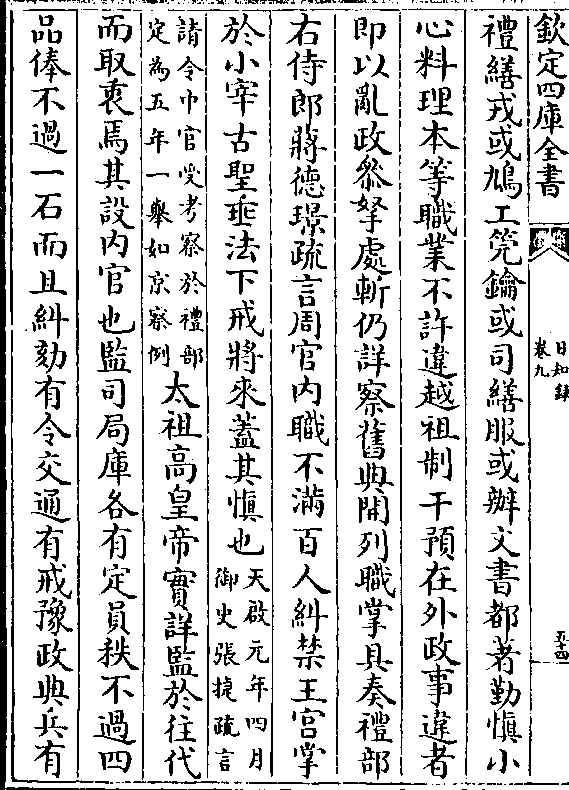 欽定四庫全書
日知錄
卷九
五十四
禮繕戎或鳩工筦鑰或司繕服或辦文書都著勤慎小
心料理本等職業不許違越祖制干預在外政事違者
即以亂政參拏處斬仍詳察舊典開列職掌具奏禮部
右侍郎蔣德璟疏言周官內職不滿百人糾禁王宮掌
於小宰古聖垂法下戒將來蓋其慎也
天啟元年四月
御史張捷疏言
請令中官受考察於禮部
定為五年一舉如京察例
太祖高皇帝實詳監於往代
而取衷焉其設內官也監司局庫各有定員秩不過四
品俸不過一石而且糾劾有令交通有戒豫政典兵有